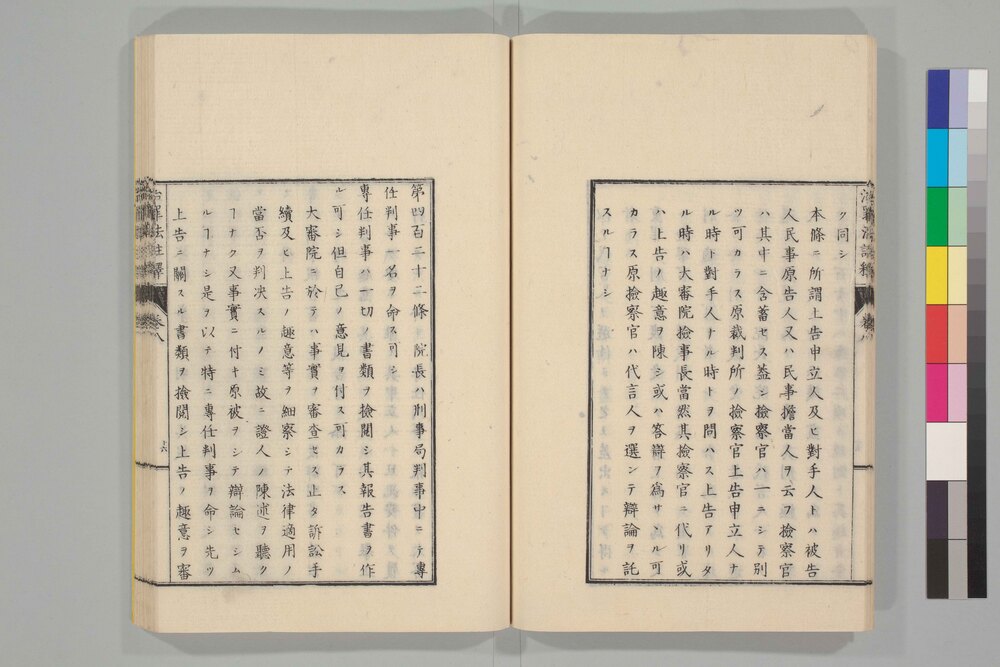 ク同シ
本條ニ所謂上告申立人及ヒ對手人トハ被告
人民事原告人又ハ民事擔當人ヲ云フ撿察官
ハ其中ニ含蓄セス蓋シ撿察官ハ一ニシテ別
ツ可カラス原裁判所ノ撿察官上告申立人ナ
ル時ト對手人ナル時トヲ問ハス上告アリタ
ル時ハ大審院撿事長當然其撿察官ニ代リ或
ハ上告ノ趣意ヲ陳シ或ハ答辯ヲ爲サヽル可
カラス原撿察官ハ代言人ヲ選ンテ辯論ヲ託
スルヿナシ
第四百二十二條 院長ハ刑事局判事中ニテ專
任判事一名ヲ命ス可シ
專任判事ハ一切ノ書類ヲ撿閲シ其報告書ヲ作
ル可シ但自己ノ意見ヲ付ス可カラス
大審院ニ於テハ事實ヲ審査セス止タ訴訟手
續及ヒ上告ノ趣意等ヲ細察シテ法律適用ノ
當否ヲ判决スルノミ故ニ證人ノ陳述ヲ聽ク
ヿナク又事實ニ付キ原被ヲシテ辯論セシム
ルヿナシ是ヲ以テ特ニ專任判事ヲ命シ先ツ
上告ニ關スル書類ヲ撿閲シ上告ノ趣意ヲ審
治罪法註釋 卷八